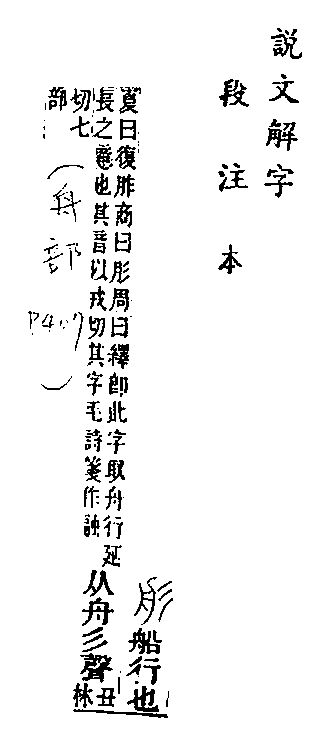 說文解字
段注本
肜船行也
夏曰復胙商曰肜周曰繹卽此字取舟行延
長之意也其音以戎切其字毛詩箋作融
从舟彡聲
丑
林
切七
部
(舟部P407)